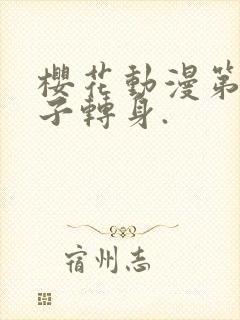 櫻花動漫第
子轉身.
宿州志